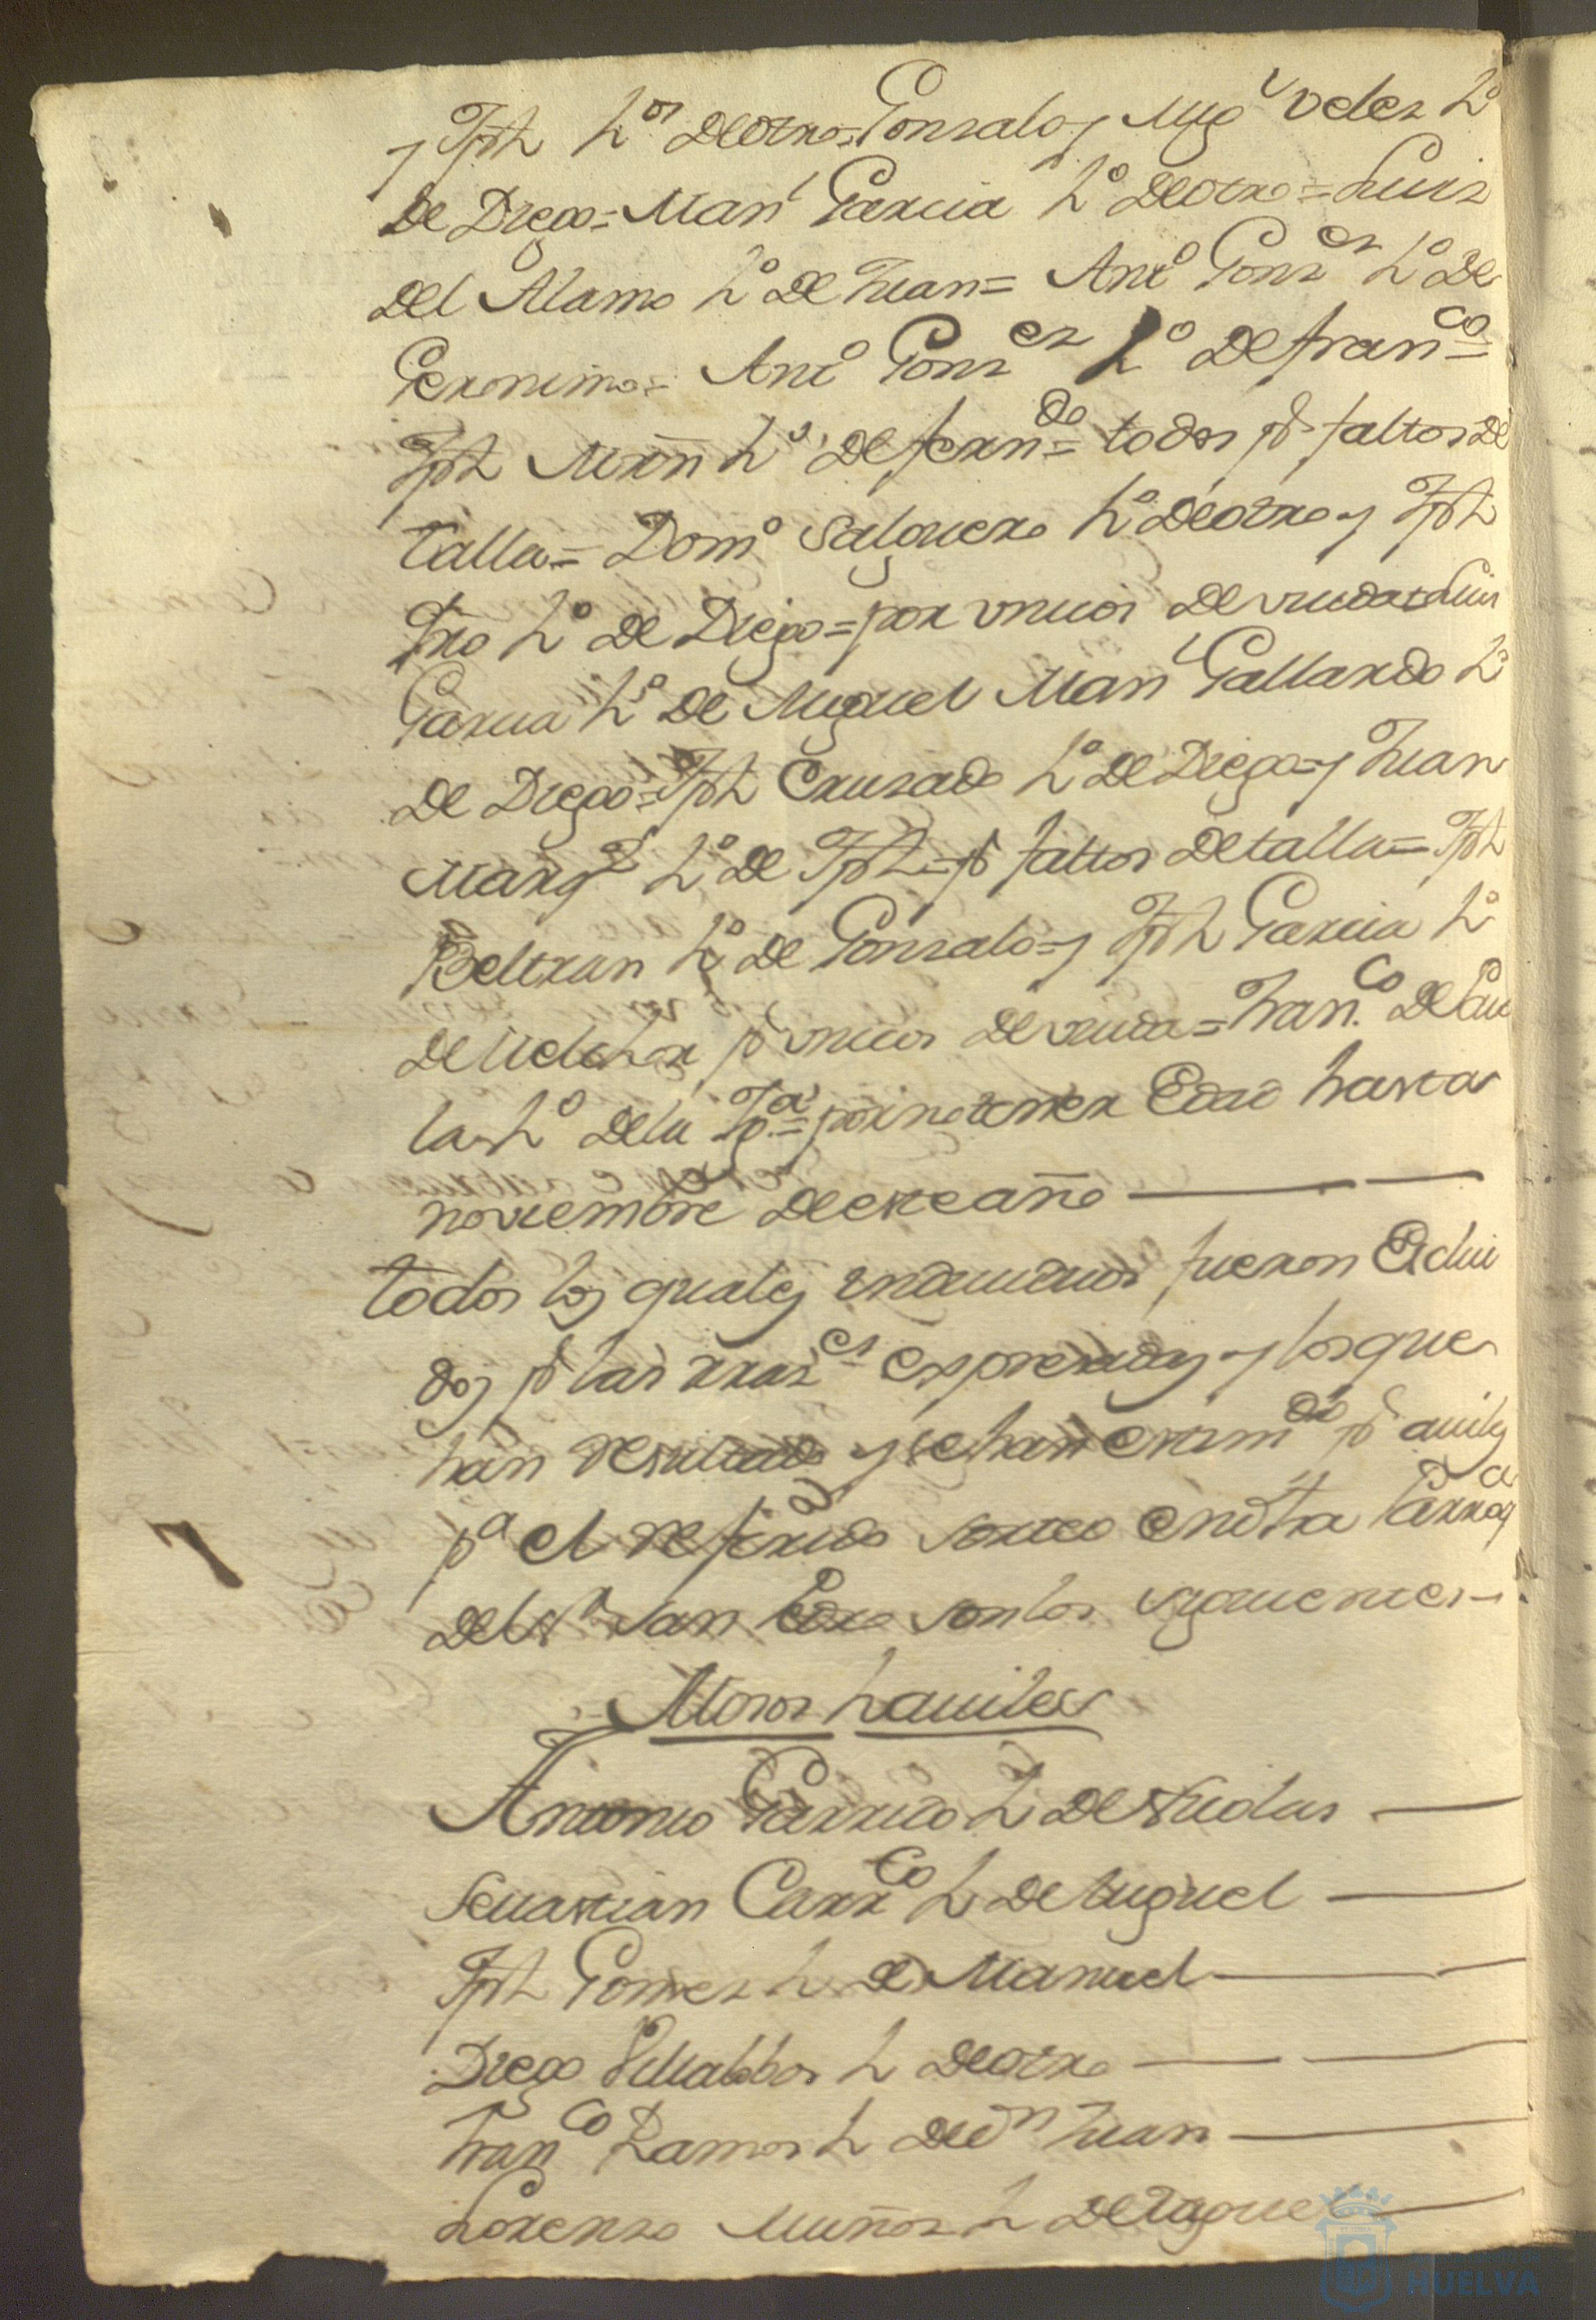 y Jph hos de otro = Gonzalo y Migl Velez ho
de Diego = Manl Garcia ho de otro = Luis
del Alamo ho de Juan = Anto Gonzez ho de
Geronimo = Anto Gonzez ho de Franco =
Jph Mrñ ho de Ferndo = todos pr faltos de
talla = Domo Salguero ho de otro y Jph
ho de Diego = por unicos de viudas = Luis
Garcia ho de Miguel Manl Gallardo ho
de Diego = Jph Cruzado ho de Diego = y Juan
Marqz ho de Jph = pr faltos de talla = Jph
Beltran ho de Gonzalo = y Jph Garcia ho
de Melchor pr unicos de viuda = Franco de Pau
la ho de la Yga = por no tener Edad hasta
noviembre de este año
todos los quales yndividuos fueron Exclui
dos pr las rrazes expresadas y los que
han resultado y se han examdo pr aviles
pa el referido sorteo en dha Parroqa
del Sr San Pedro son los siguientes
Mosos haviles
Antonio Garrido h de Nicolas
Sevastian Carrco h de Miguel
Jph Gomez h de Manuel
Diego Villalobos h de otro
Franco Ramos h de dn Juan
Lorenzo Muñoz h de Miguel
HUELVA